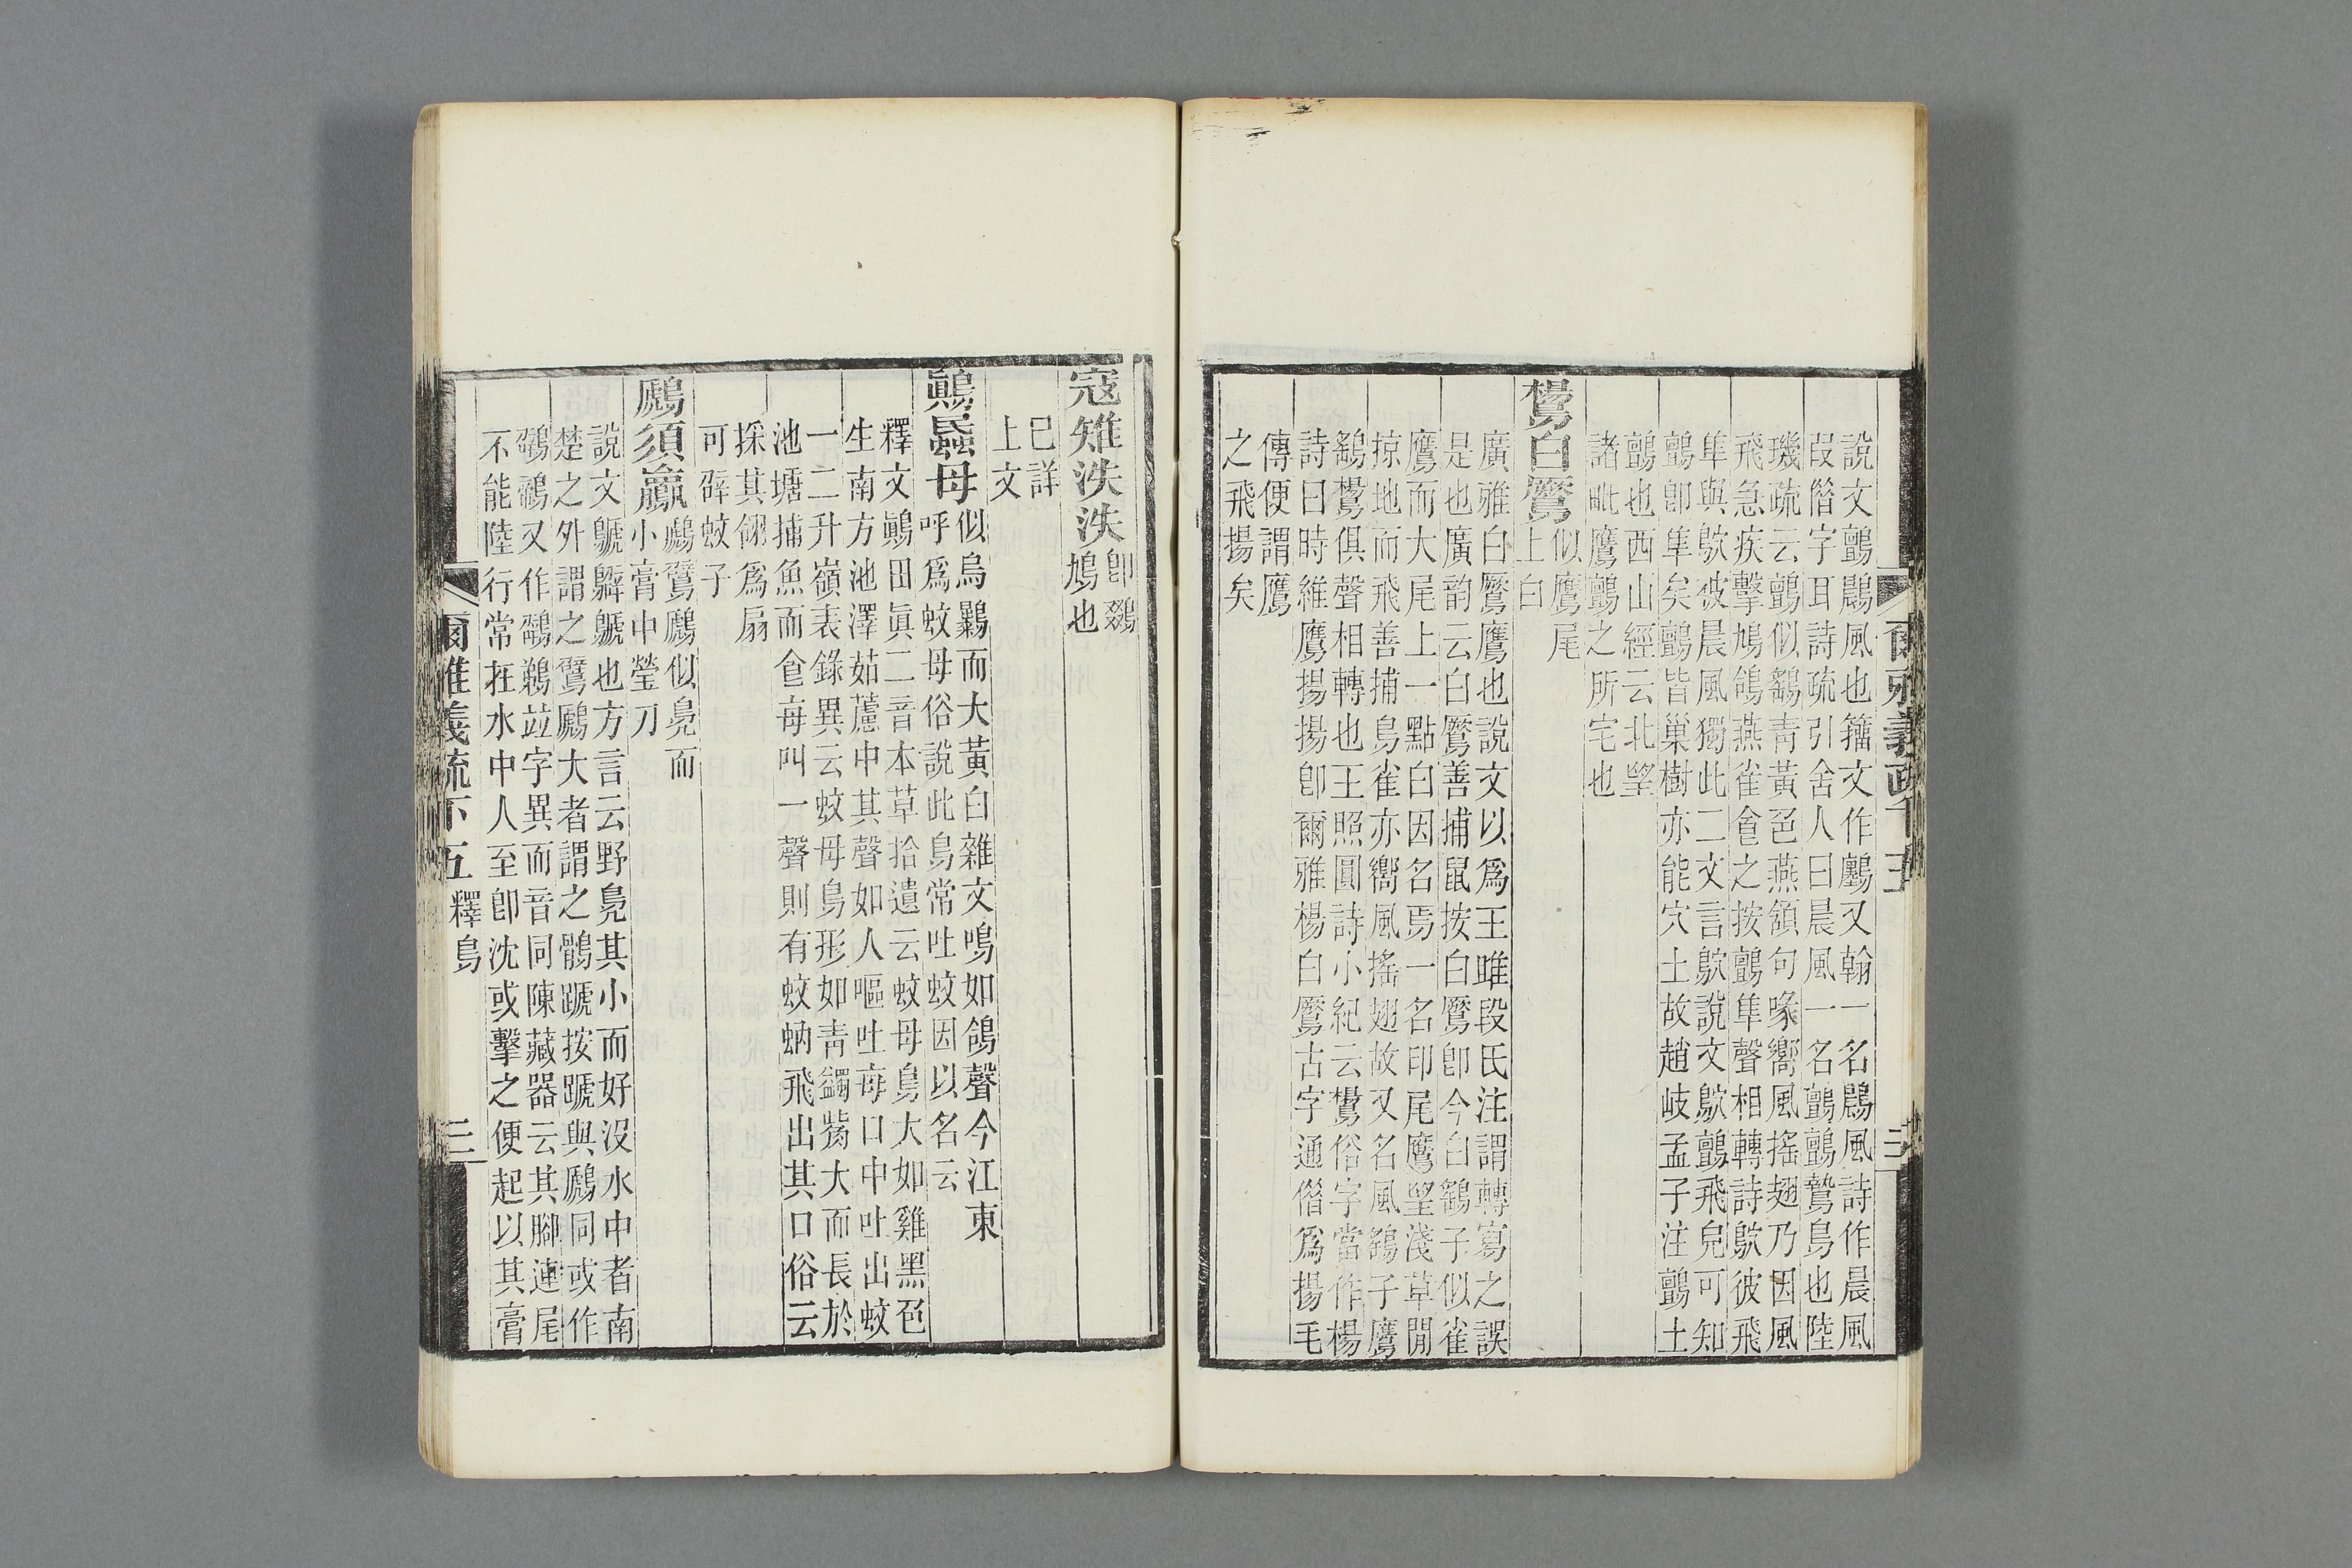 說文鸇鷐風也籒文作鸇又翰一名鷐風詩作晨風
叚借字耳詩疏引舍人曰晨風一名鸇鸇鷙鳥也陸
璣疏云鸇似鷂青黃色燕頷句喙嚮風搖翅乃因風
飛急疾擊鳩鴿燕雀食之按鸇隼聲相轉詩鴥彼飛
隼與鴥彼晨風獨此二文言鴥說文鴥鸇飛皃可知
鸇卽隼矣鸇皆巢樹亦能穴土故趙岐孟子注鸇土
鸇也西山經云北望
諸毗鷹鸇之所宅也
鸉白鷢
似鷹尾
上白
廣雅白鷢鷹也說文以爲王雎段氏注謂轉寫之誤
是也廣韵云白鷢善捕鼠按白鷢卽今白鷂子似雀
鷹而大尾上一點白因名焉一名印尾鷹望淺草閒
掠地而飛善捕鳥雀亦嚮風搖翅故又名風鷂子鷹
鷂鸉俱聲相轉也王照圓詩小紀云鸉俗字當作楊
詩曰時維鷹揚揚卽爾雅楊白鷢古字通借爲揚毛
傳便謂鷹
之飛揚矣
寇雉泆泆
卽鵽
鳩也
已詳
上文
鷏蟁母
似烏鷃而大黃白雜文鳴如鴿聲今江東
呼爲蚊母俗說此鳥常吐蚊因以名云
釋文鷏田眞二音本草拾遺云蚊母鳥大如雞黑色
生南方池澤茹藘中其聲如人嘔吐每口中吐出蚊
一二升嶺表錄異云蚊母鳥形如青鷁觜大而長於
池塘捕魚而食每叫一聲則有蚊蚋飛出其口俗云
採其翎爲扇
可辟蚊子
鷉須鸁
鷉鷿鷉似鳧而
小膏中瑩刀
說文鷈鸊鷈也方言云野鳧其小而好沒水中者南
楚之外謂之鷿鷉大者謂之鶻蹏按蹏與鷉同或作
鷊鷸又作鷊鶙竝字異而音同陳藏器云其腳連尾
不能陸行常在水中人至卽沈或擊之便起以其膏
爾雅義疏下五 釋鳥 三